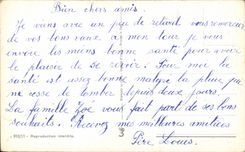 Bien chers amis.
Je viens avec un peu de retard vous remercier
de vos bons vœux à mon tour je vous
envoie les miens bonne santé pour avoir
le plaisir de se revoir. Pour moi la
santé est assez bonne malgré la pluie qui
ne cesse de tomber depuis deux jours.
La famille vous fait part de ses bons
souhaits. Recevez mes meilleures amitiées
Père Louis.
Reproduction interdite